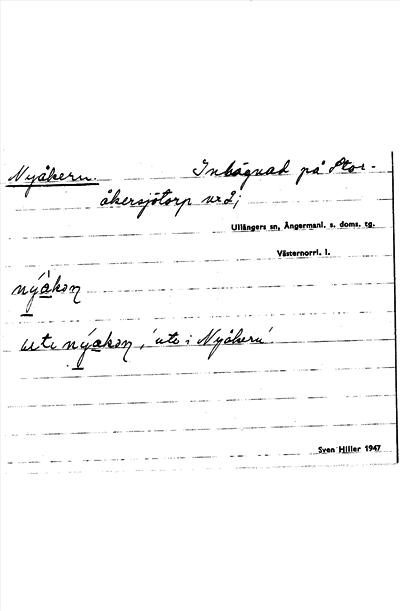 Nyåkern. Inhägnad på Stor-
åkersjötorp nr 2;
Ullångers sn, Ångermanl. s. doms. tg.
Västernorrl. l.
nýåkəɳ
ute nýåkəɳ, 'ute i Nyåkern'
Sven Hiller 1947